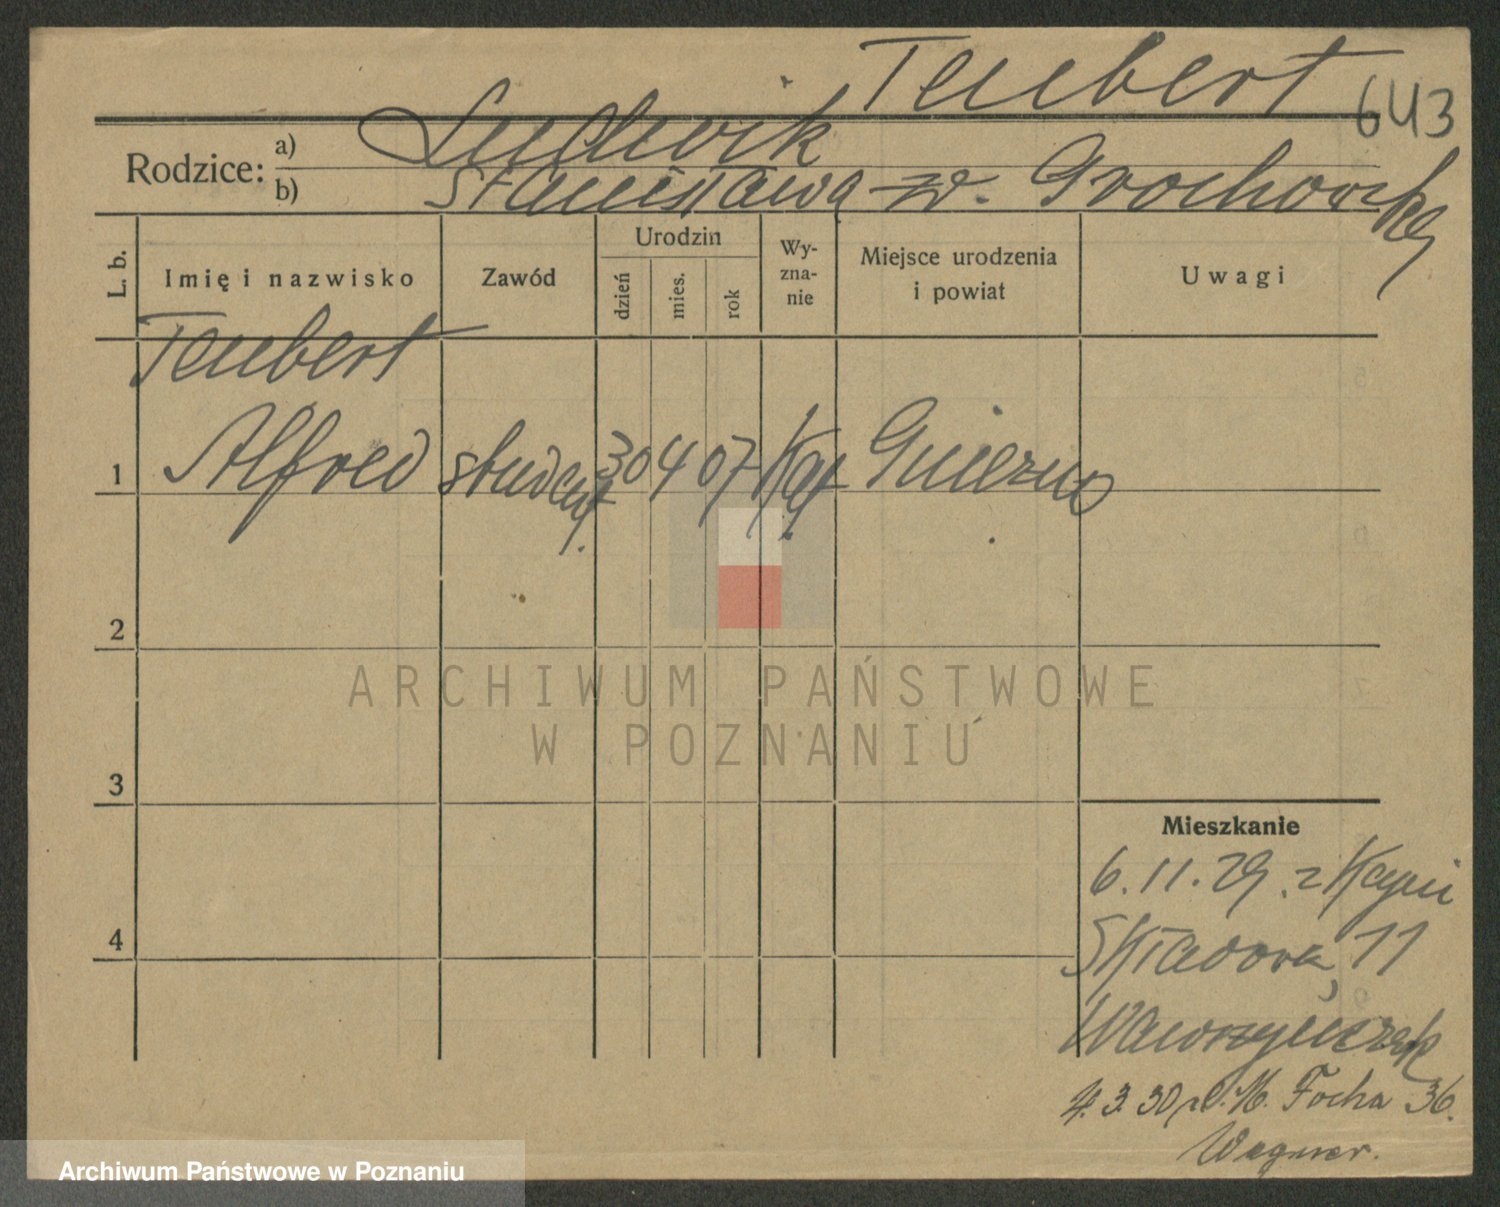 Teubert
643
Rodzice: a) Ludwik
b) Stanisława z d. Grochowska
L. b. Imię i nazwisko Zawód Urodzin dzień mies. rok Wy- zna- nie Miejsce urodzenia i powiat Uwagi
Teubert
1 Alfred student 30 4 07 Kat Gniezno
2
3
4
Mieszkanie
6.11.29. z Kcyni
Składowa 11
Wawrzynczak
4.3.30 M. Focha 36.
Wegner.
ARCHIWUM PAŃSTWOWE
W POZNANIU
Archiwum Państwowe w Poznaniu